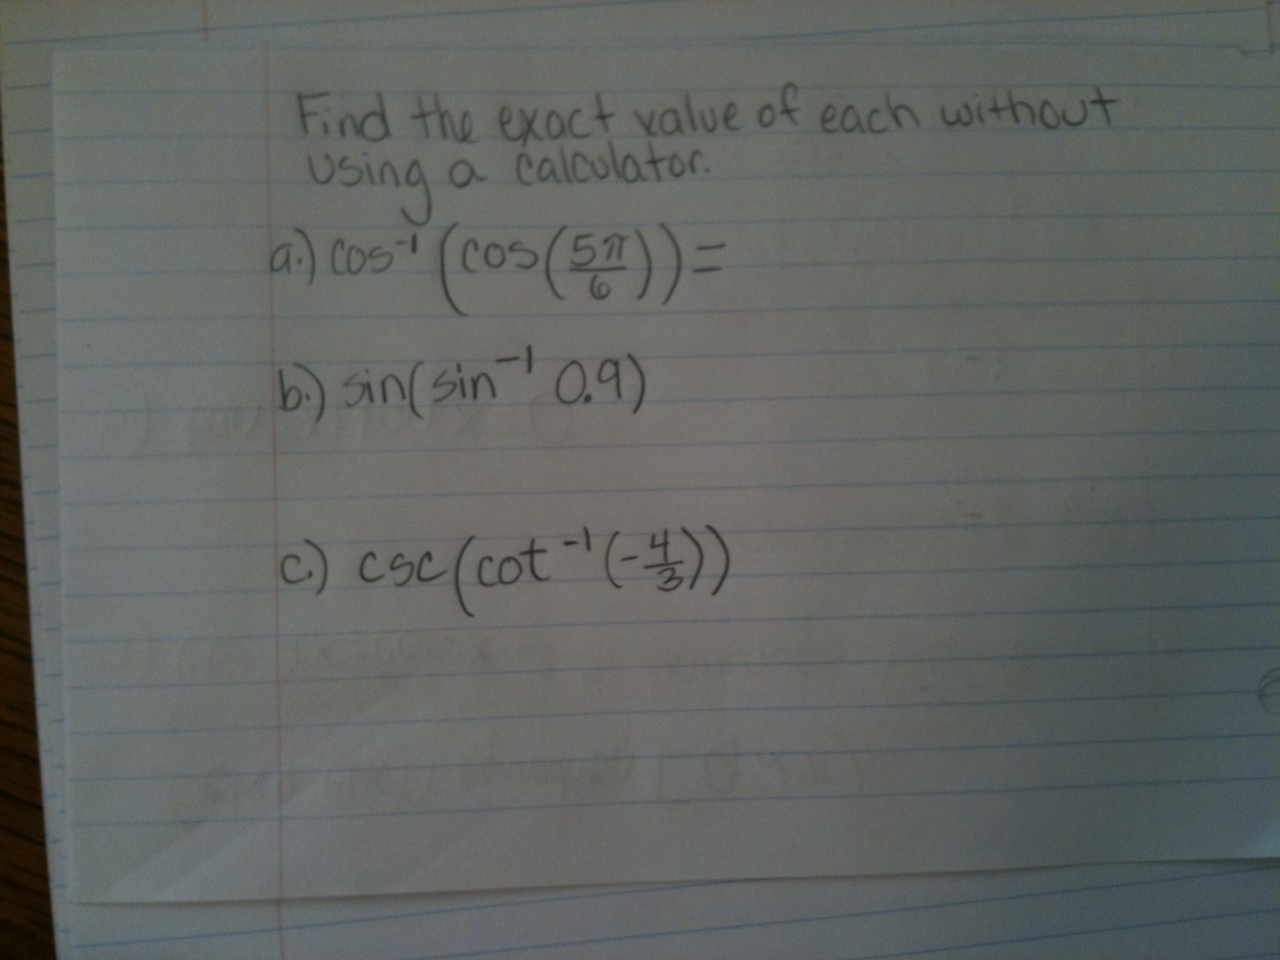 Find the exact value of each without
using a calculator.
a.) cos⁻¹(cos(5π/6))=
b.) sin(sin⁻¹ 0.9)
c.) csc(cot⁻¹(-4/3))